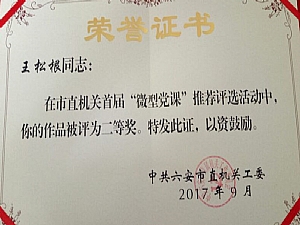 荣誉证书
王松根同志：
在市直机关首届“微型党课”推荐评选活动中，
你的作品被评为二等奖。特发此证，以资鼓励。
中共六安市直机关工委
2017年9月